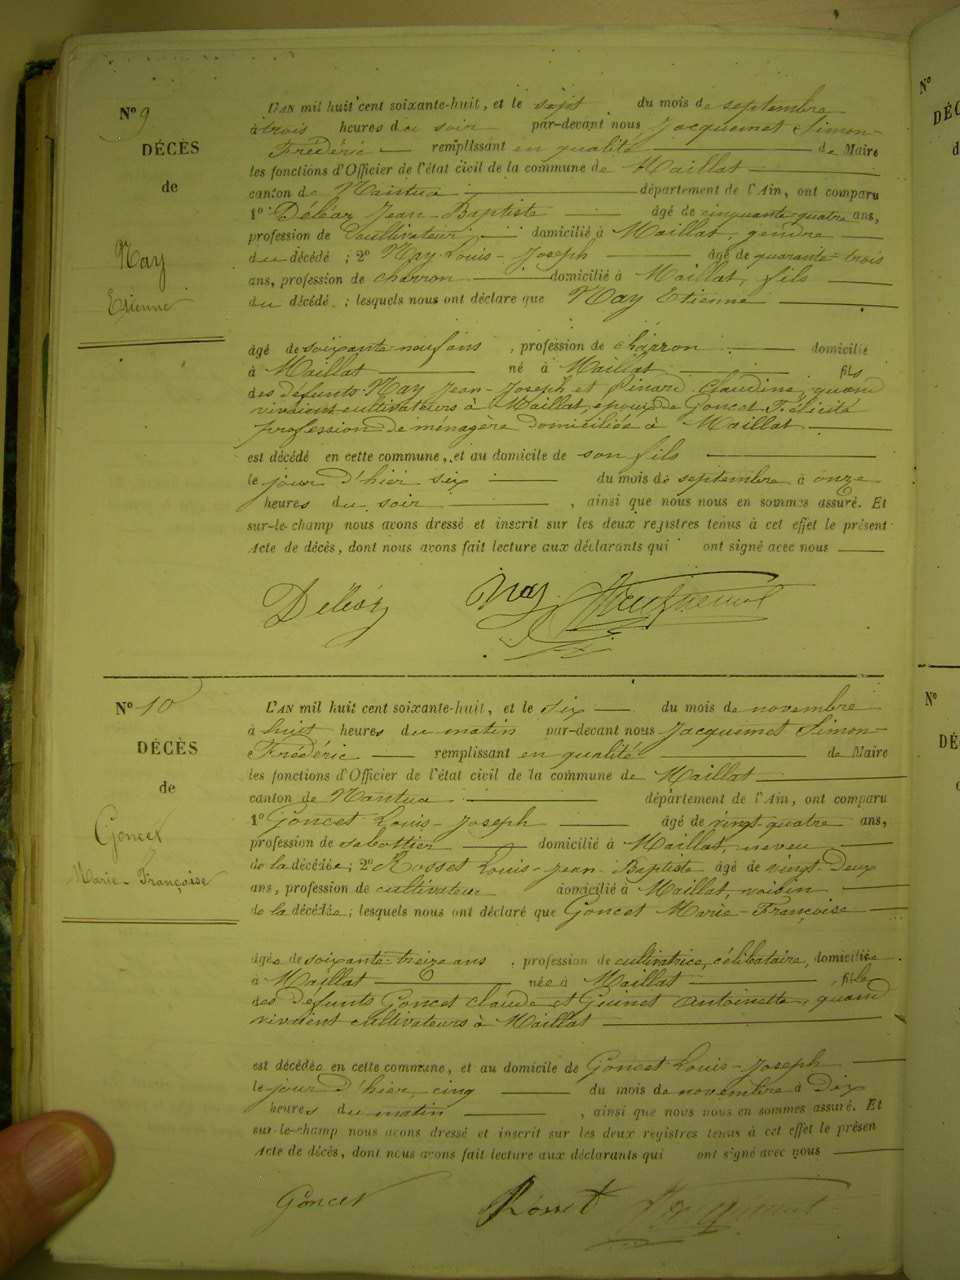 N° 9
DÉCÈS
de
Nay
Etienne
L'AN mil huit cent soixante-huit, et le sept du mois de septembre
à trois heures du soir par-devant nous Jacquemet Simon-
Frédéric remplissant en qualité de Maire
les fonctions d'Officier de l'état civil de la commune de Maillat
canton de Nantua département de l'Ain, ont comparu
1° Déléaz Jean-Baptiste âgé de cinquante-quatre ans,
profession de cultivateur domicilié à Maillat, gendre
du décédé ; 2° Nay Louis-Joseph âgé de quarante-trois
ans, profession de charron domicilié à Maillat, fils
du décédé ; lesquels nous ont déclaré que Nay Etienne
âgé de soixante neuf ans , profession de charron domicilié
à Maillat né à Maillat fils
des défunts Nay Jean-Joseph et Pinard Claudine, quand
vivaient cultivateurs à Maillat, époux de Goncet Félicité
profession de ménagère domiciliée à Maillat
est décédé en cette commune, et au domicile de son fils
le jour d'hier six du mois de septembre à onze
heures du soir , ainsi que nous nous en sommes assuré. Et
sur-le-champ nous avons dressé et inscrit sur les deux registres tenus à cet effet le présent
Acte de décès, dont nous avons fait lecture aux déclarants qui ont signé avec nous
Déléaz Nay Jacquemet
N° 10
DÉCÈS
de
Goncet
Marie-Françoise
L'AN mil huit cent soixante-huit, et le six du mois de novembre
à huit heures du matin par-devant nous Jacquemet Simon-
Frédéric remplissant en qualité de Maire
les fonctions d'Officier de l'état civil de la commune de Maillat
canton de Nantua département de l'Ain, ont comparu
1° Goncet Louis-Joseph âgé de vingt-quatre ans,
profession de sabottier domicilié à Maillat, neveu
de la décédée ; 2° Rosset Louis-Jean-Baptiste âgé de vingt-deux
ans, profession de cultivateur domicilié à Maillat, voisin
de la décédée ; lesquels nous ont déclaré que Goncet Marie-Françoise
âgée de soixante-treize ans , profession de cultivatrice, célibataire, domiciliée
à Maillat née à Maillat , fille
des défunts Goncet Claude et Guinet Antoinette, quand
vivaient cultivateurs à Maillat
est décédée en cette commune, et au domicile de Goncet Louis-Joseph
le jour d'hier cinq du mois de novembre à dix
heures du matin , ainsi que nous nous en sommes assuré. Et
sur-le-champ nous avons dressé et inscrit sur les deux registres tenus à cet effet le présen
Acte de décès, dont nous avons fait lecture aux déclarants qui ont signé avec nous
Goncet Rosset Jacquemet
N°
DÉC
d
N°
DÉ